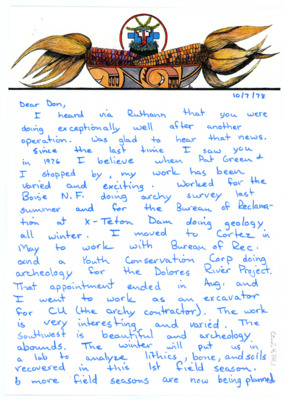 10/7/78
Dear Don,
I heard via Ruthann that you were
doing exceptionally well after another
operation. Was glad to hear that news.
Since the last time I saw you
in 1976 I believe when Pat Green &
I stopped by, my work has been
varied and exciting. Worked for the
Boise N.F. doing archy survey last
summer and for the Bureau of Reclama-
tion at X-Teton Dam doing geology
all winter. I moved to Cortez in
May to work with Bureau of Rec.
and a Youth Conservation Corp doing
archeology for the Dolores River Project.
That appointment ended in Aug. and
I went to work as an excavator
for CU (the archy contractor). The work
is very interesting and varied. The
Southwest is beautiful and archeology
abounds. The winter will put us in
a lab to analyze lithics, bone, and soils
recovered in this 1st field season.
6 more field seasons are now being planned